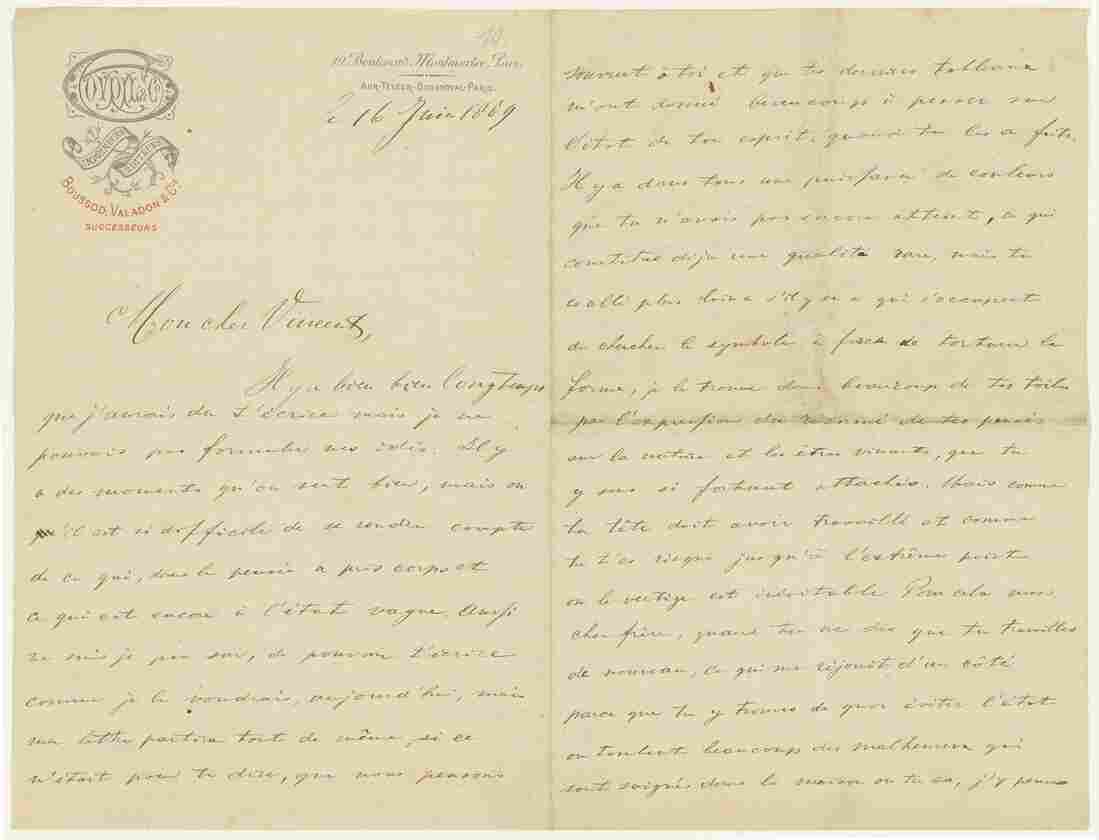 GOUPIL & Cie
IMPRIMEURS
EDITEURS
BOUSSOD, VALADON & Cie
SUCCESSEURS
19. Boulevard Montmartre, Paris.
ADR. TELEGR. BOUSSOVAL-PARIS.
le 16 Juin 1889
Mon cher Vincent,
Il y a bien bien longtemps
que j'aurais du t'écrire mais je ne
pouvais pas formuler mes idées. Il y
a des moments qu'on sent bien, mais ou
qu'il est si difficile de se rendre compte
de ce qui, dans la pensée a pris corps et
ce qui est encore à l'état vague. Aussi
ne suis je pas sur, de pouvoir t'écrire
comme je le voudrais, aujourd'hui, mais
ma lettre partira tout de même, si ce
n'était pour te dire, que nous pensons
souvent à toi et que tes derniers tableaux
m'ont donné beaucoup à penser sur
l'état de ton esprit, quand tu les a faits.
Il y a dans tous une puissance de couleurs
que tu n'avais pas encore atteint, ce qui
constitue déja une qualité rare, mais tu
es allé plus loin & s'il y en a qui s'occupent
de chercher le symbole à force de torturer la
forme, je le trouve dans beaucoup de tes toiles
par l'expression du résumé de tes pensées
sur la nature et les êtres vivants, que tu
y sens si fortement attachés. Mais comme
ta tête doit avoir travaillé et comme
tu t'es risqué jusqu'à l'extrême point
ou le vertige est inévitable. Pour cela mon
cher frère, quand tu me dis que tu travailles
de nouveau, ce qui me réjouit d'un côté
parce que tu y trouves de quoi éviter l'état
ou tombent beaucoup des malheureux qui
sont soignés dans la maison ou tu es, j'y pense